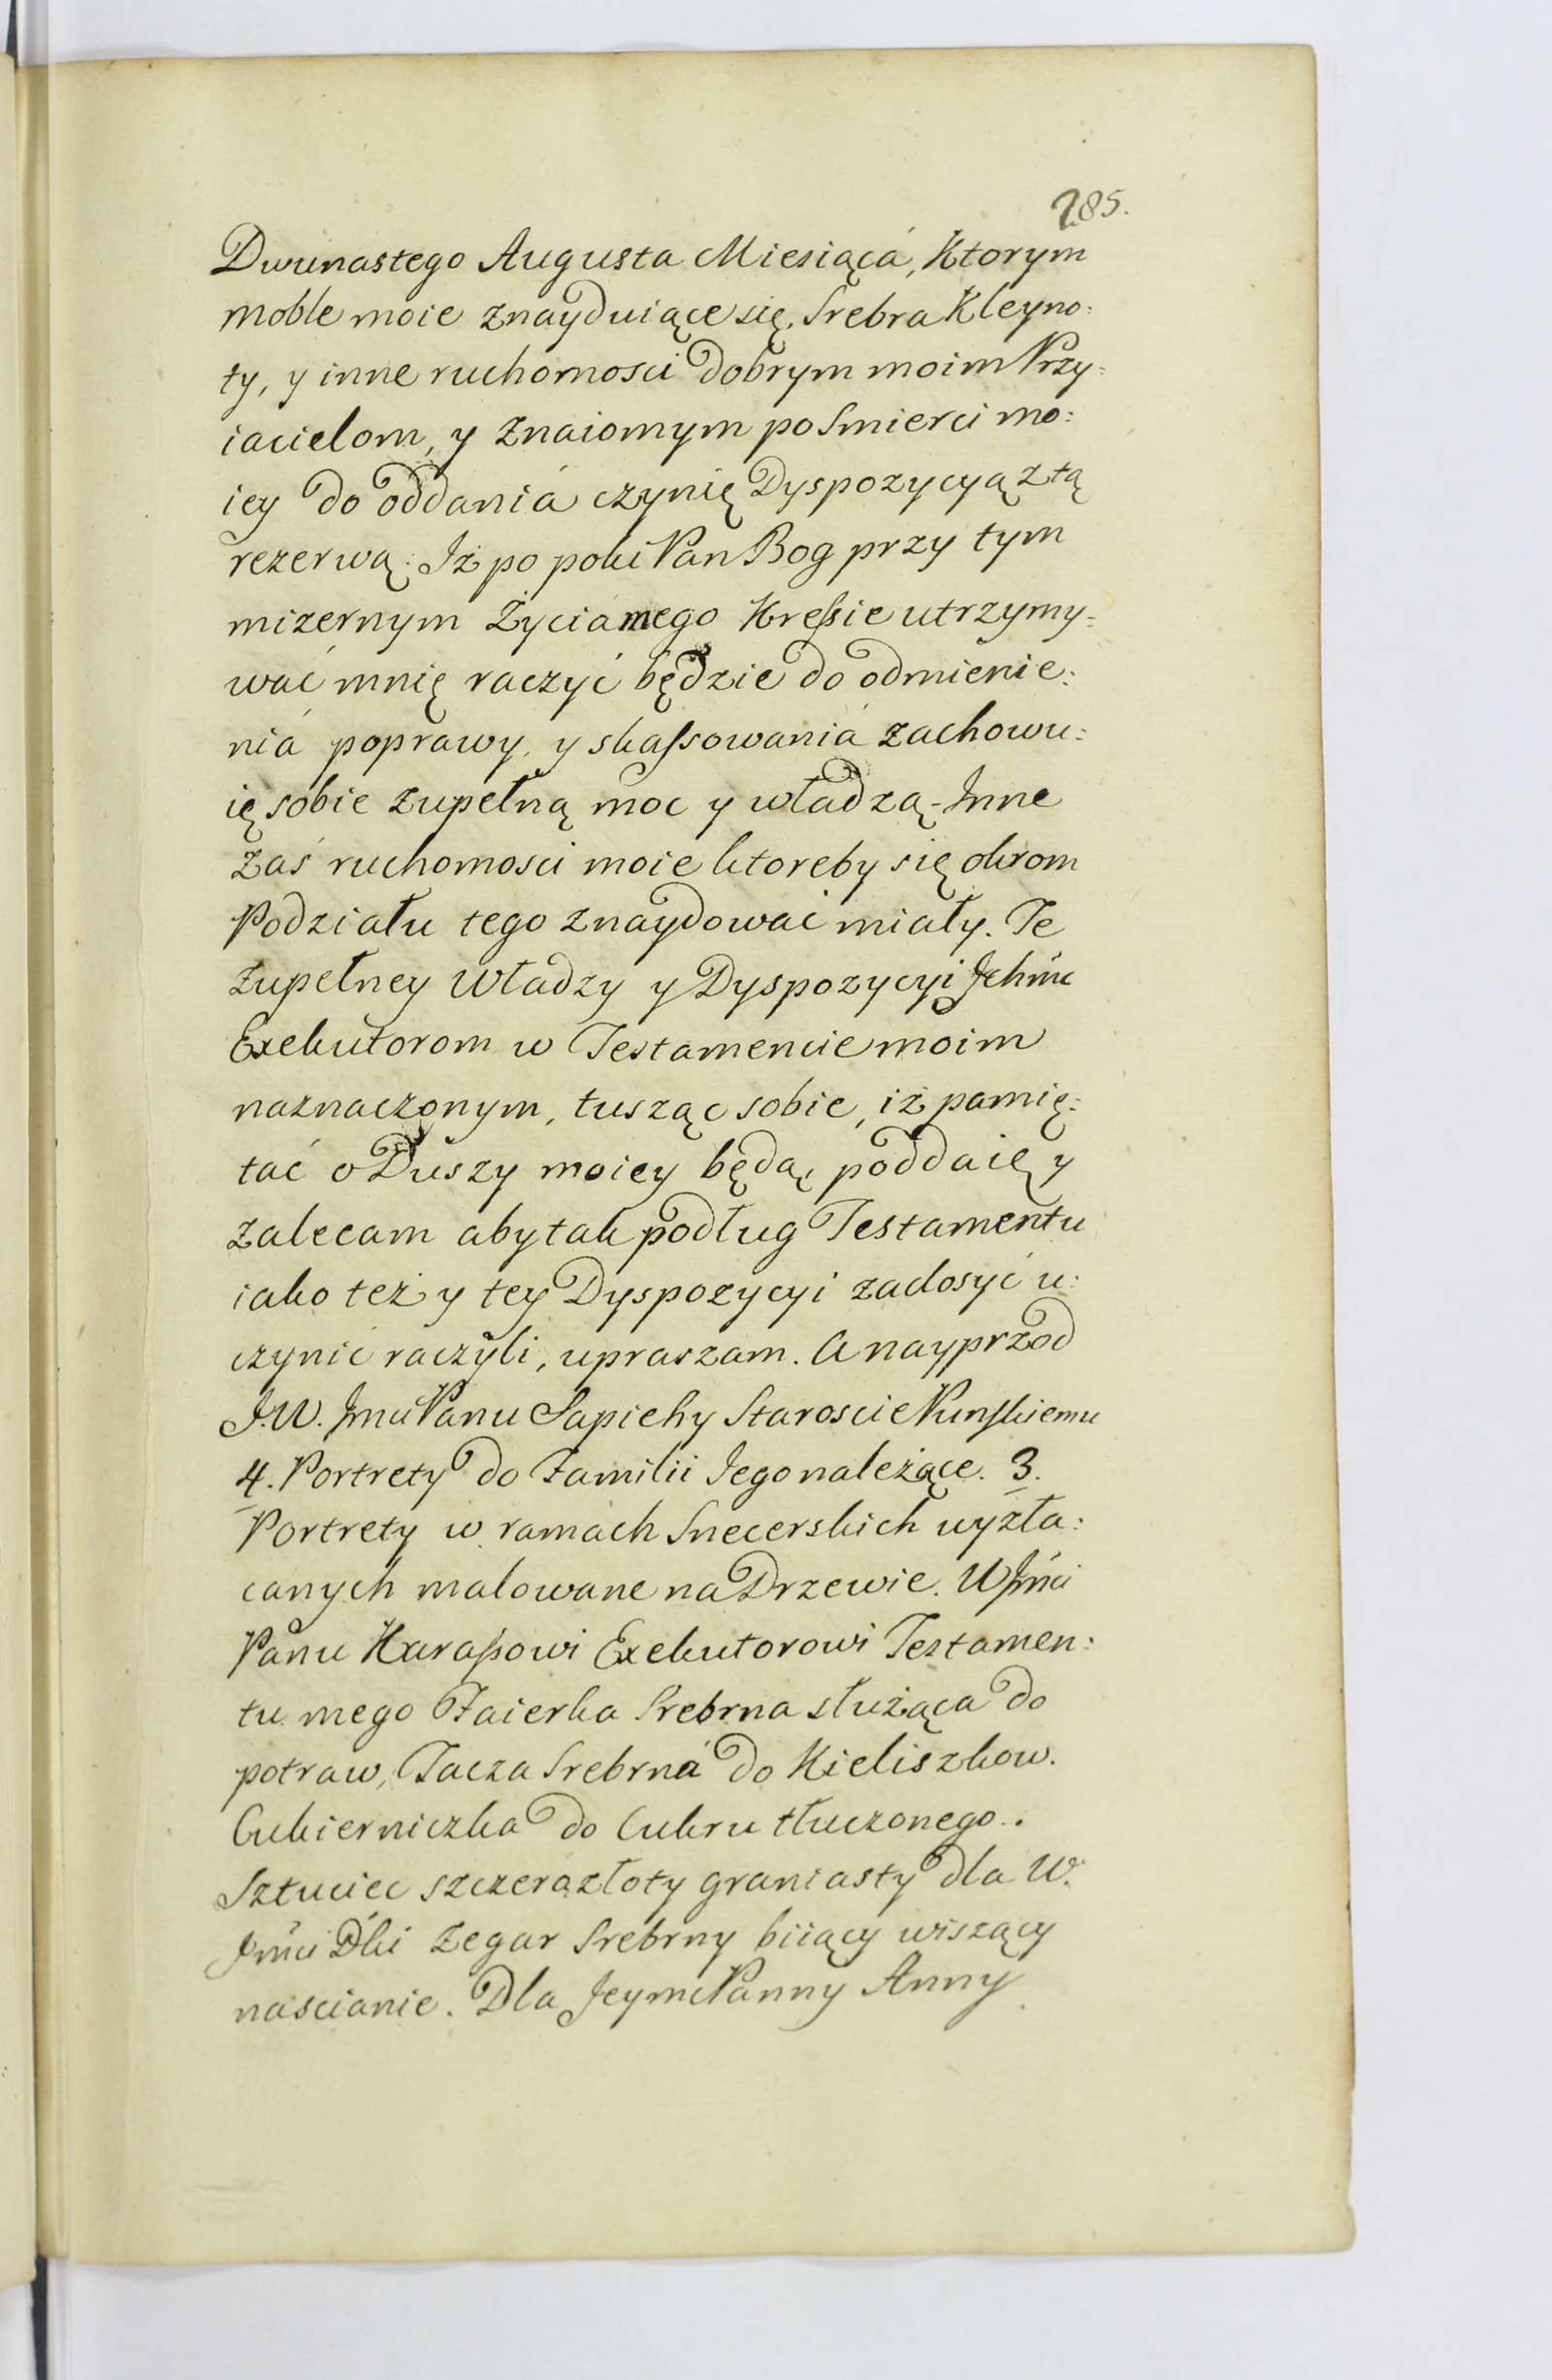 285.
Dwunastego Augusta Miesiąca, Ktorym
moble moie znayduiące się, Srebra Kleyno:
ty, y inne ruchomosci dobrym moim Przy:
iacielom, y znaiomym po Smierci mo:
iey do oddaniá czynię Dyspozycyą z tą
rezerwą: Iż po poki Pan Bog przy tym
mizernym Życiá mego Kreſsie utrzymy:
wać mnię raczyć będzie do odmienie:
niá poprawy, y skaſsowaniá zachowu:
ię sobie zupełną moc y władzą - Inne
zaś ruchomosci moie ktoreby się okrom
Podziału tego znaydować miały. Te
zupełney władzy y Dyspozycyi Jchmć
Exekutorom w Testamencie moim
naznaczonym, tusząc sobie, iż pamię:
tać o Duszy moiey będą, poddaię y
zalecam aby tak podług Testamentu
iako też y tey Dyspozycyi zadosyć u:
czynić raczyli, upraszam. A nayprzod
J.W. Jmci Panu Sapiehy Staroscie Punskiemu
4. Portrety do Familii Jego należące. 3.
Portrety w ramach Snecerskich wyzła:
canych malowane na Drzewie. W Jmći
Panu Haraſsowi Exekutorowi Testamen:
tu mego Faierka Srebrna służąca do
potraw, Tacza Srebrná do Kieliszkow.
Cukierniczka do Cukru tłuczonego.
Sztuciec szczerozłoty graniasty dla W.
Jmći Dki Zegar Srebrny biiący wiszący
na scianie. Dla Jeymć Panny Anny